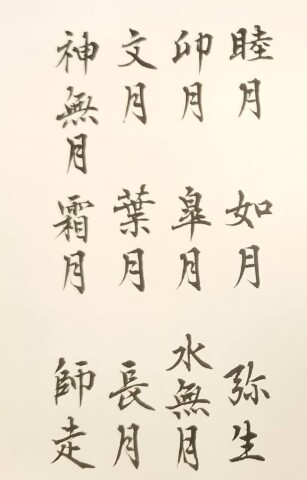 睦月 如月 弥生
卯月 皐月 水無月
文月 葉月 長月
神無月 霜月 師走